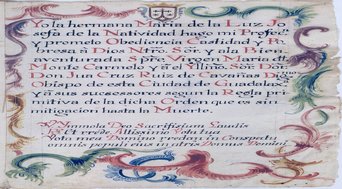 Yo la hermana Maria de la Luz Jo
sefa de la Natividad hago mi Profec.ⁿ
y prometo Obediencia Castidad y Po
bresa a Dios Ntro. Sor. y ala Bien
aventurada Spre. Virgen Maria dl
Monte Carmelo y el Yllmo. Sor. D.
Don Jua Cruz Ruiz de Cavañas Di
Obispo de esta Ciudad de Guadalax.ª
y âsus sucessores segun la Regla pri
mitiva de la dicha Orden que es sin
mitigacion hasta la Muerte.
Ymmola Deo Sacrifisium Laudis
et rredde Altissimo Vota tua
Vota mea Domino reedan in Conspectu
omnis populi eius in atris Domus Domini